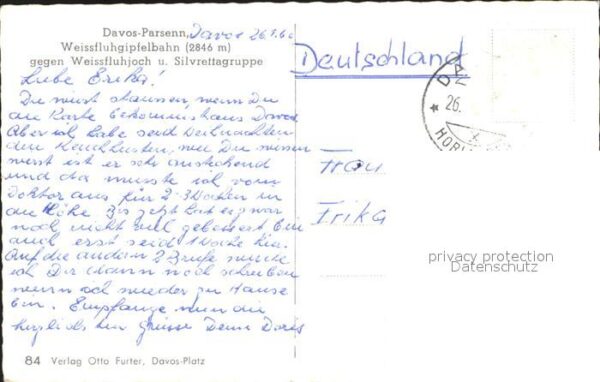 Davos-Parsenn, Davos 26.1.60
Weissfluhgipfelbahn (2846 m)
gegen Weissfluhjoch u. Silvrettagruppe
Deutschland
Liebe Erika!
Du wirst staunen, wenn Du
die Karte bekommst aus Davos.
Aber ich habe seid Weihnachten
den Keuchhusten, wie Du wissen
wirst ist er sehr ansteckend
und da musste ich vom
Doktor aus für 2-3 Wochen in
die Höhe. Bis jetzt hat es zwar
noch nicht viel gebessert bin
auch erst seid 1 Woche hier.
Auf die andern 2 Briefe werde
ich Dir dann noch schreiben
wenn ich wieder zu Hause
bin. Empfange nun die
herzlichsten Grüsse Deine Doris
Frau
Erika
DA
26.
HORI
privacy protection
Datenschutz
84 Verlag Otto Furter, Davos-Platz